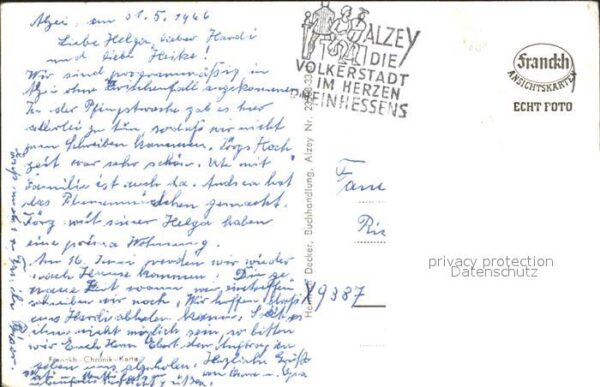 Alzei, am 31. 5. 1966
Liebe Helga, lieber Hardi
und liebe Heike!
Wir sind programmäßig in
Alzei ohne angekommen
In der Pfingstwoche gab es hier
allerlei zu tun, sodaß wir nicht
zum Schreiben kamen. Jörgs Hoch
zeit war sehr schön. Ute mit
Familie ist auch da. Andrea hat
das Blumenmädchen gemacht.
Jörg mit seiner Helga haben
eine prima Wohnung.
Am 16. Juni werden wir wieder
nach Hause kommen. Die ge
naue Zeit wann wir eintreffen
schreiben wir noch, Wir hoffen, daß
uns Hardi abholen kann, Sollte es
ihm nicht möglich sein, so bitten
wir Euch Herrn den Auftrag zu
geben uns abzuholen. Herzliche Grüße
von Oma u. Opa
ALZEY
DIE
VOLKERSTADT
IM HERZEN
RHEINHESSENS
Franckh
ANSICHTSKARTEN
ECHT FOTO
Decker, Buchhandlung, Alzey Nr.
Fam
X9387
Franckh-Chronik-Karte
privacy protection
Datenschutz